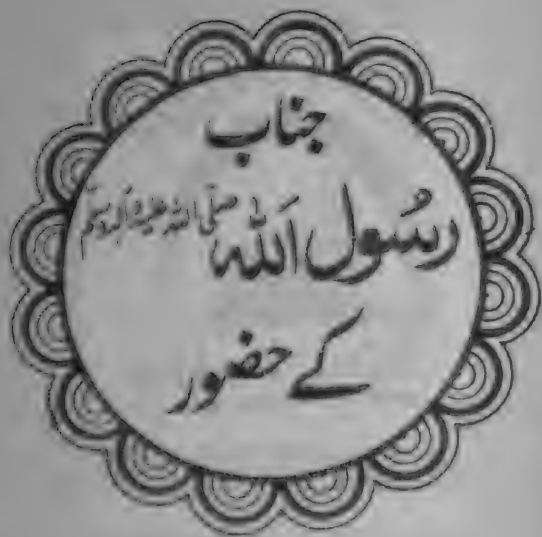 جناب
رسُول اَللہ صلی اللہ علیہ وآلہ وسلم
کے حضور